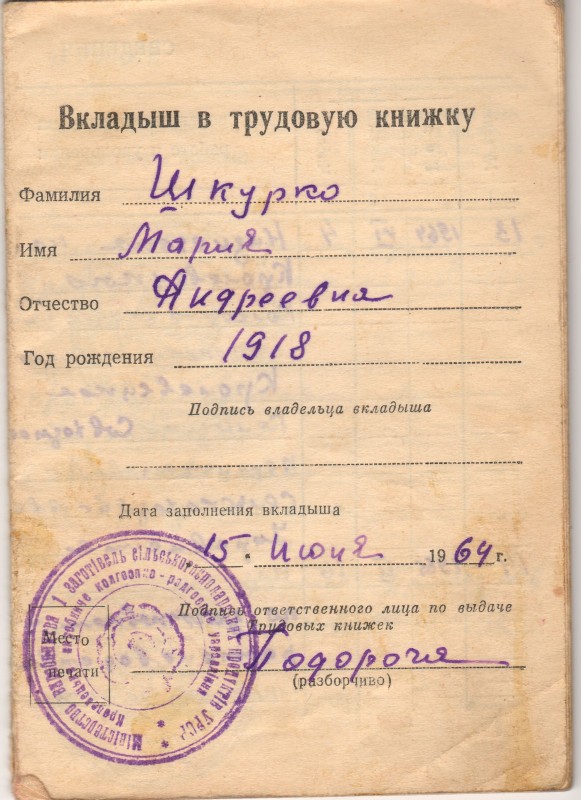 Вкладыш в трудовую книжку
Фамилия Шкурко
Имя Мария
Отчество Андреевна
Год рождения 1918
Подпись владельца вкладыша
Дата заполнения вкладыша
„15" июня 1964 г.
Подпись ответственного лица по выдаче
Трудовых книжек
Подорочя
(разборчиво)
Место
печати
Міністерство і заготівель сільськогосподарських продуктів УРСР
колгоспно-радгоспне управління